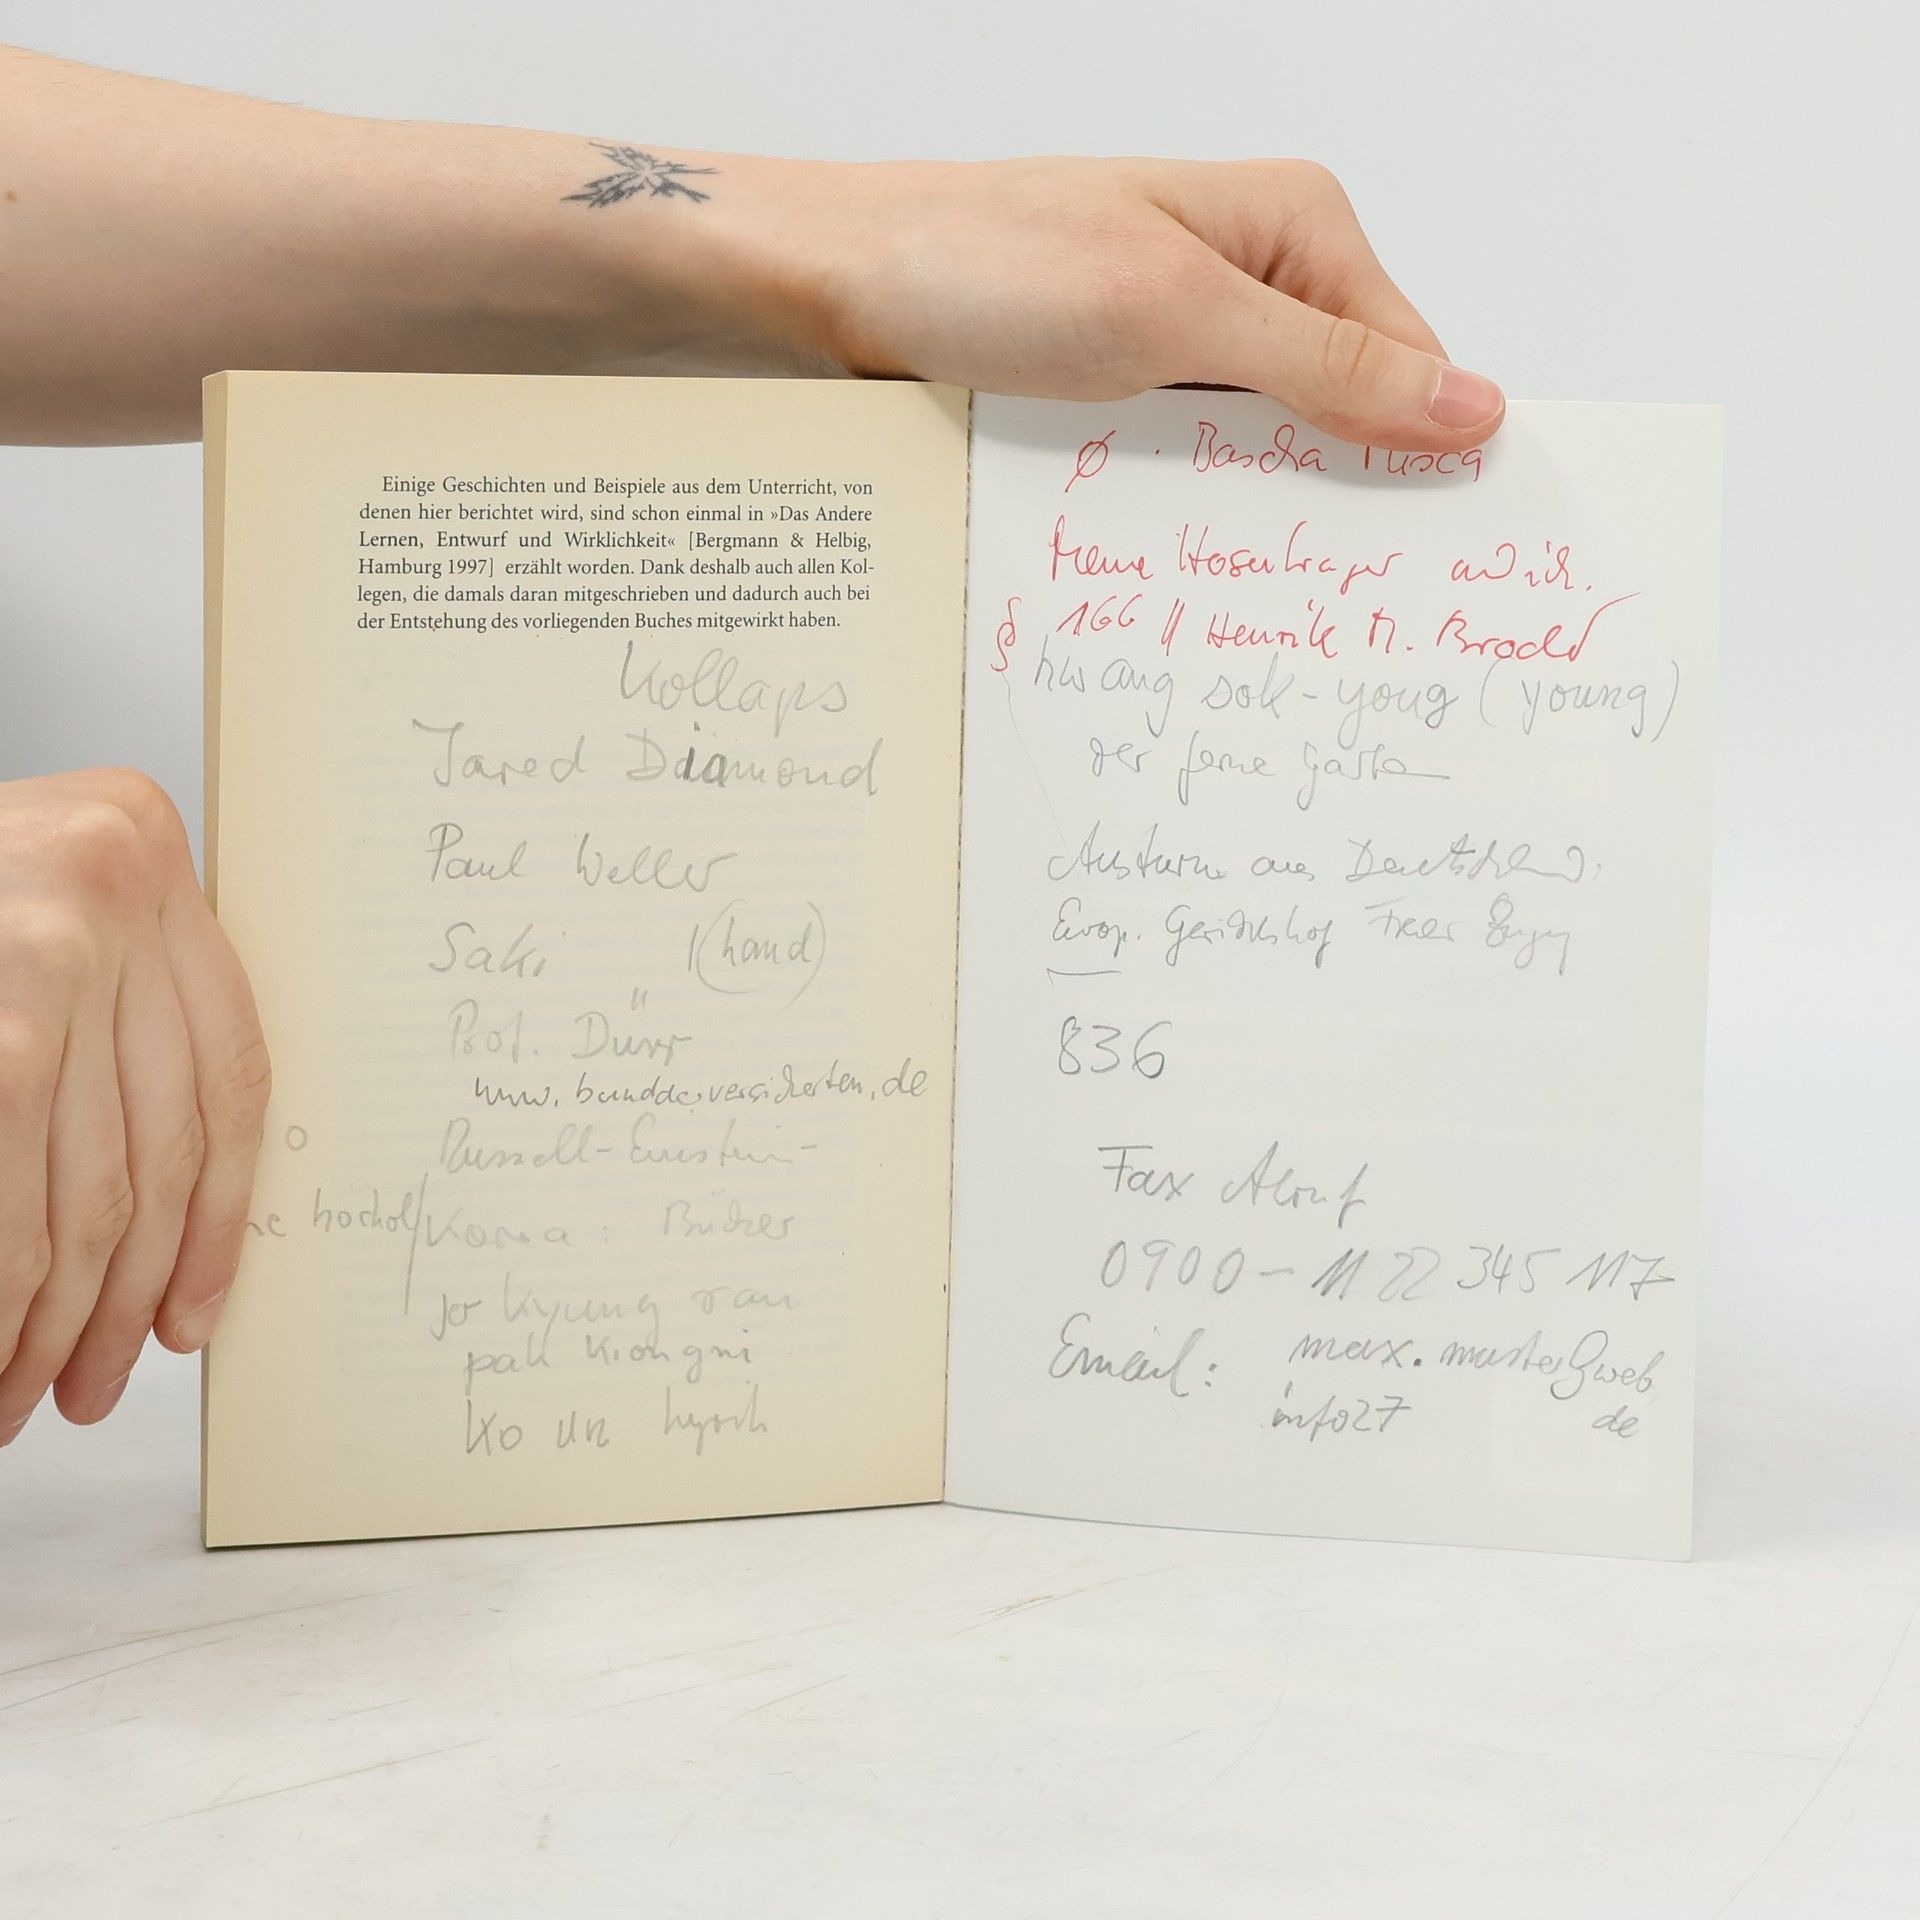 Einige Geschichten und Beispiele aus dem Unterricht, von
denen hier berichtet wird, sind schon einmal in »Das Andere
Lernen, Entwurf und Wirklichkeit« [Bergmann & Helbig,
Hamburg 1997] erzählt worden. Dank deshalb auch allen Kol-
legen, die damals daran mitgeschrieben und dadurch auch bei
der Entstehung des vorliegenden Buches mitgewirkt haben.
Kollaps
Jared Diamond
Paul Weller
Saki (hand)
Prof. Dürr
www.bundderversicherten.de
Russell-Einstein-
Korea: Bücher
jo Kyung ran
pak Kiongni
Ko Un
Ø . Bascha
Meine Hosenträger und ich.
§ 166 // Henrik M. Broder
hwang sok-yong (young)
der ferne Garten
aus Deutschland:
Europ. Gerichtshof Freier
836
Fax Abruf
0900-11 22 345 117
Email: max.muster@web
info27 de